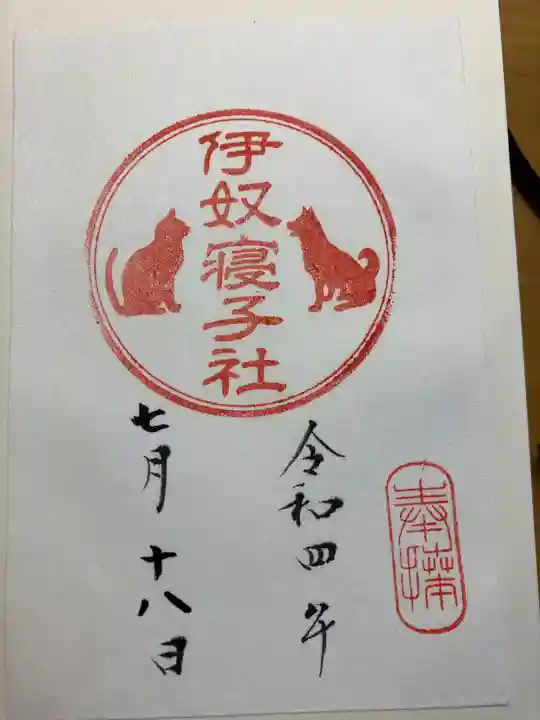 伊奴寝子社
奉拝
令和四年
七月十八日